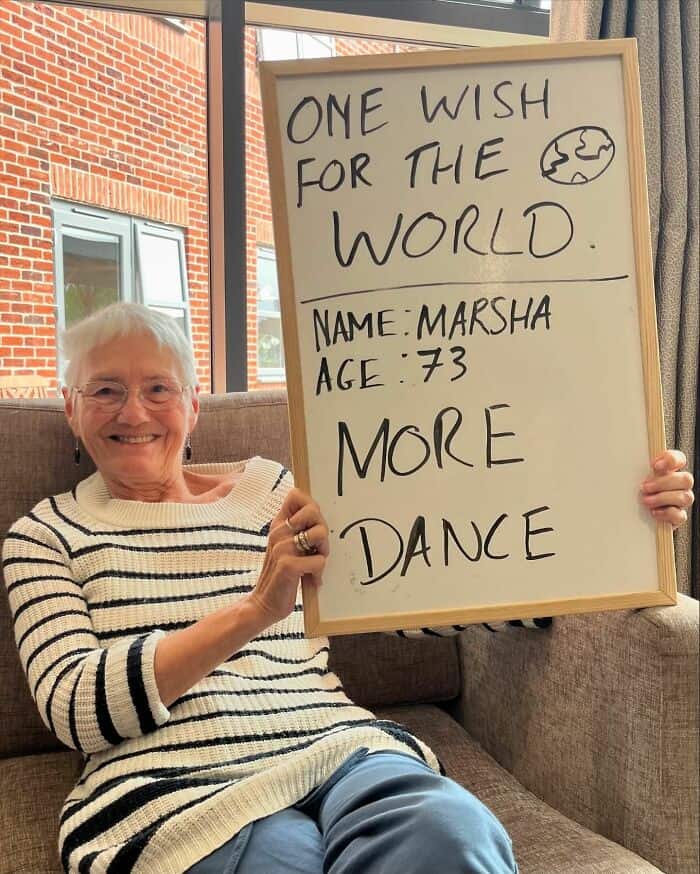 ONE WISH
FOR THE
WORLD.
NAME: MARSHA
AGE: 73
MORE
DANCE